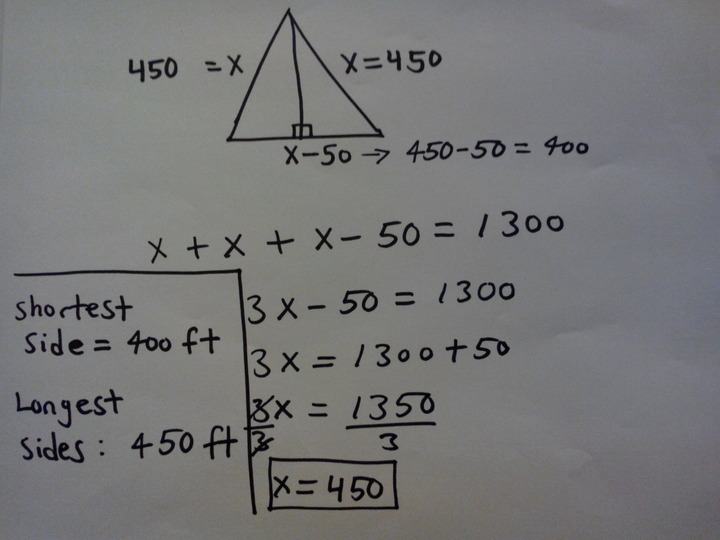 450 = x
x = 450
x - 50 → 450 - 50 = 400
x + x + x - 50 = 1300
shortest
side = 400 ft
Longest
sides: 450 ft
3x - 50 = 1300
3x = 1300 + 50
3x = 1350
3 3
x = 450